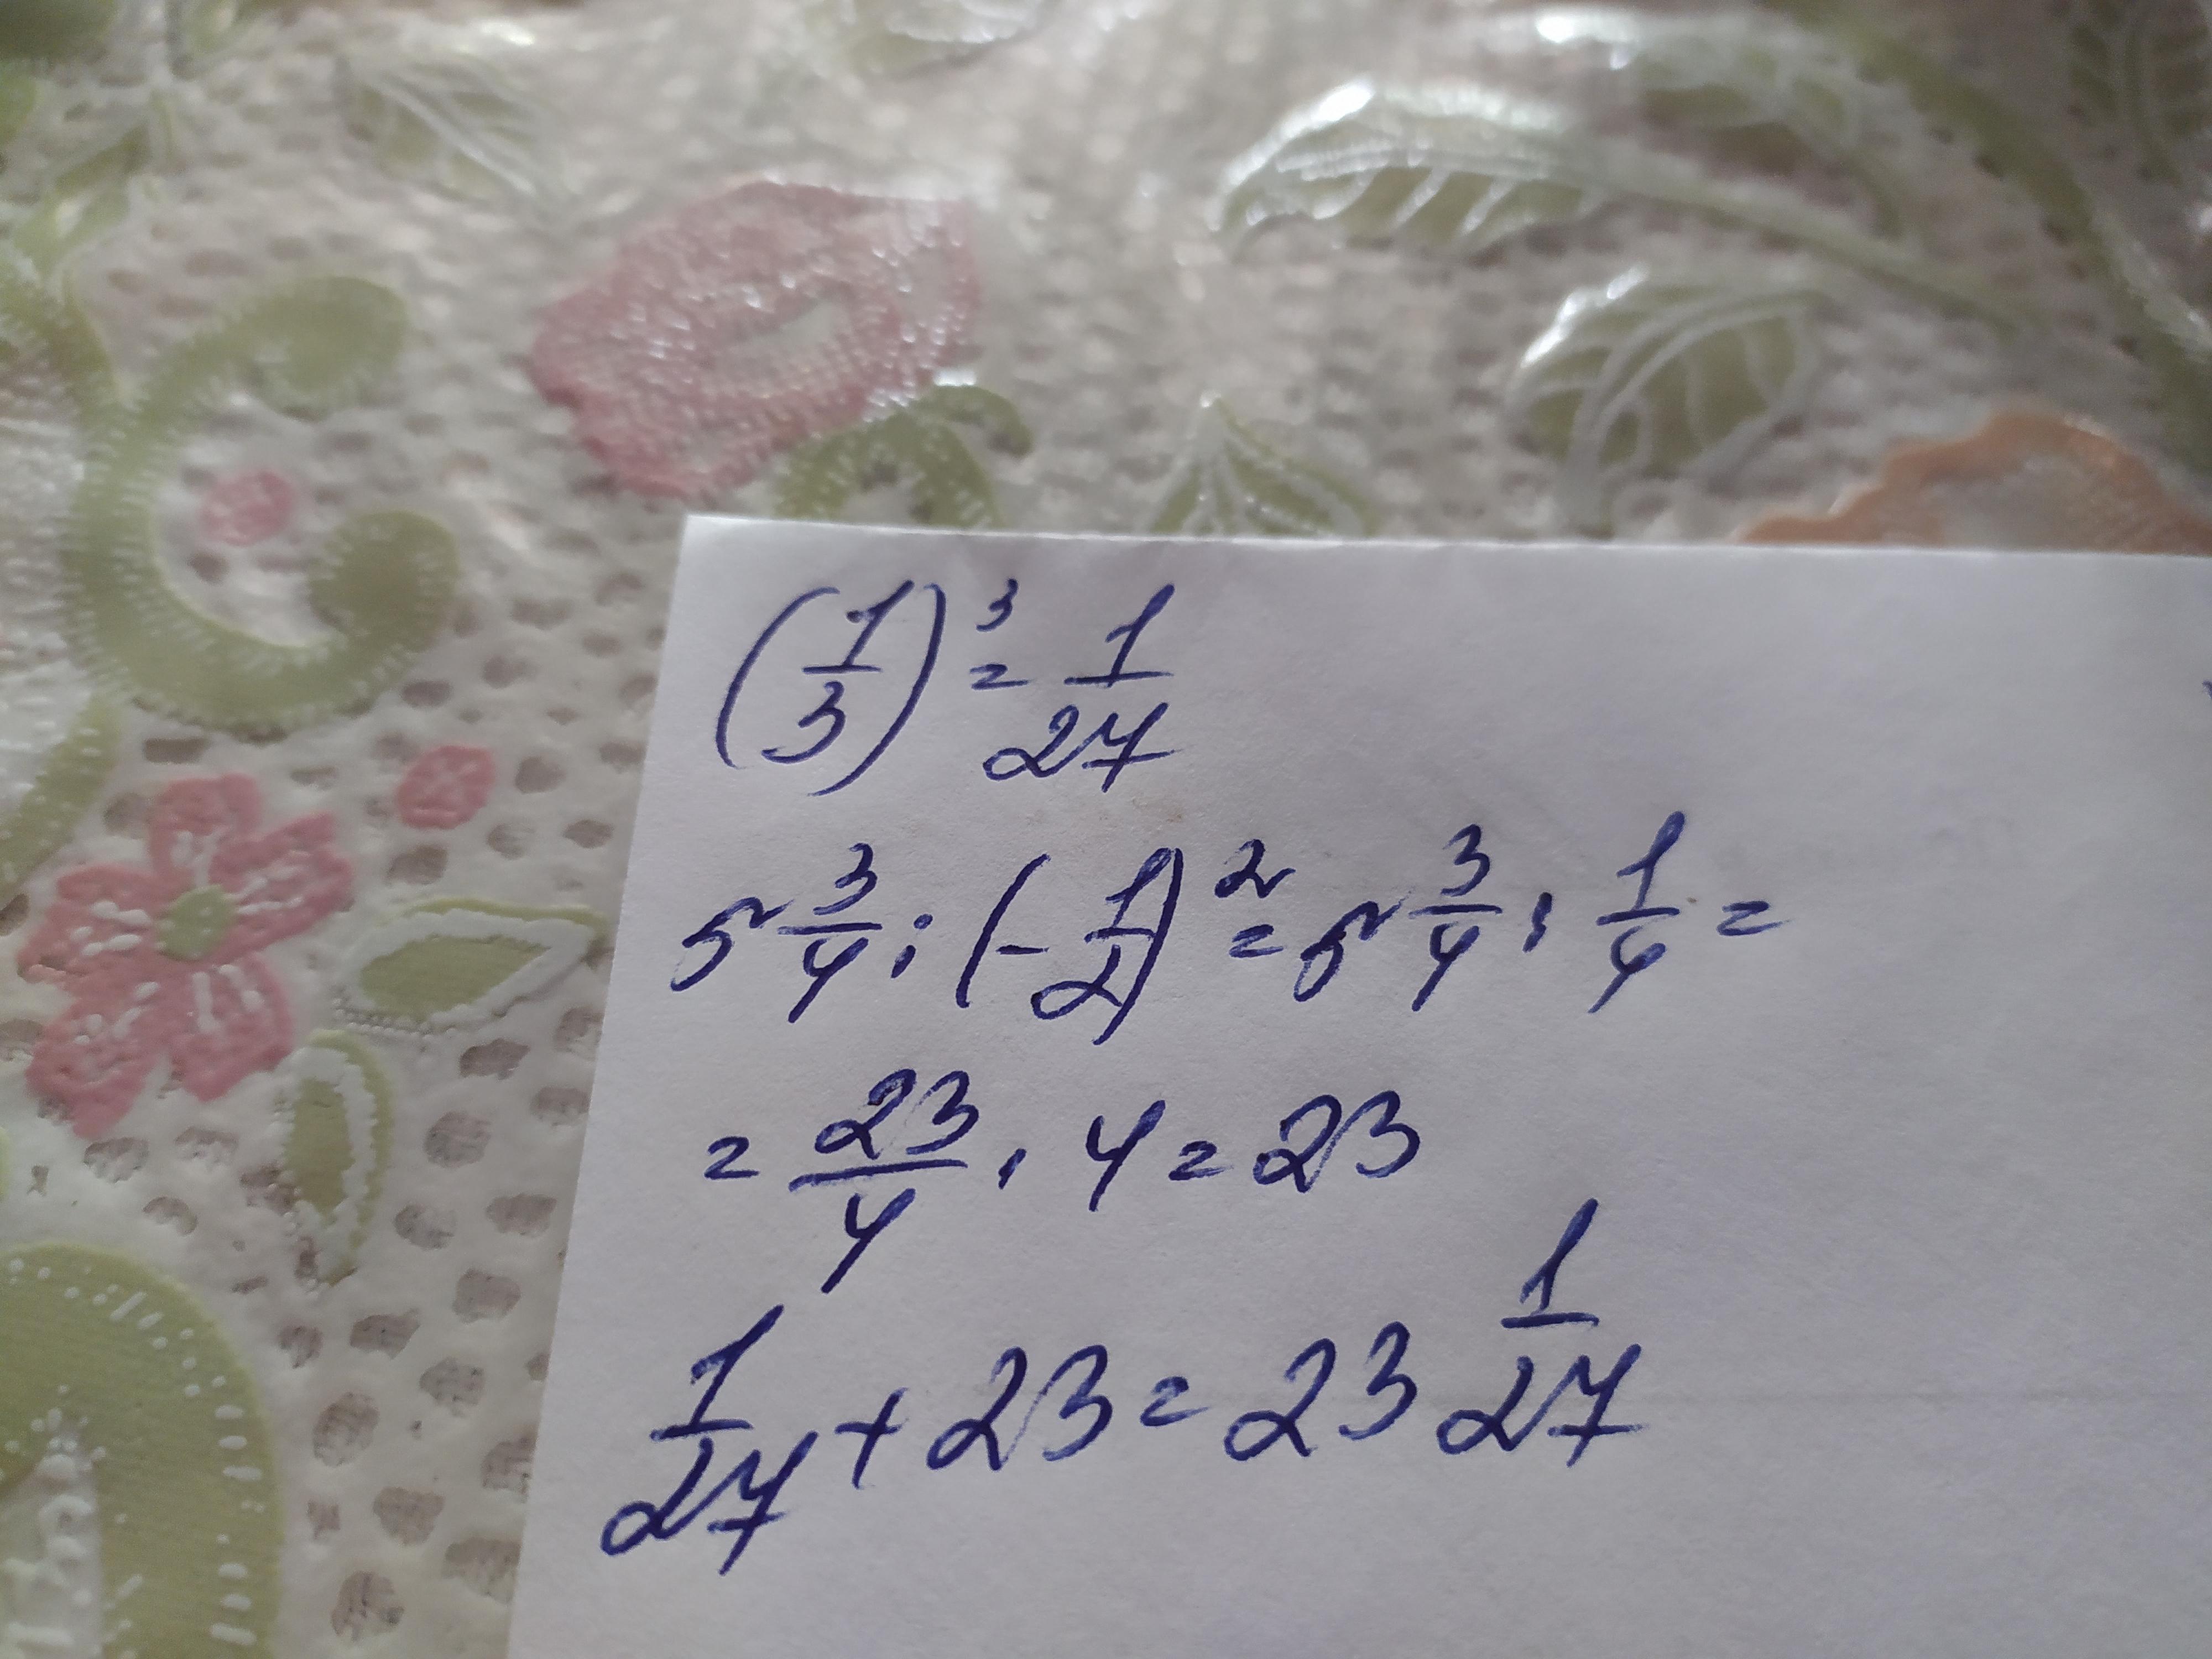 (1/3)³ = 1/27
5 3/4 : (-1/2)² = 5 3/4 : 1/4 =
= 23/4 · 4 = 23
1/27 + 23 = 23 1/27